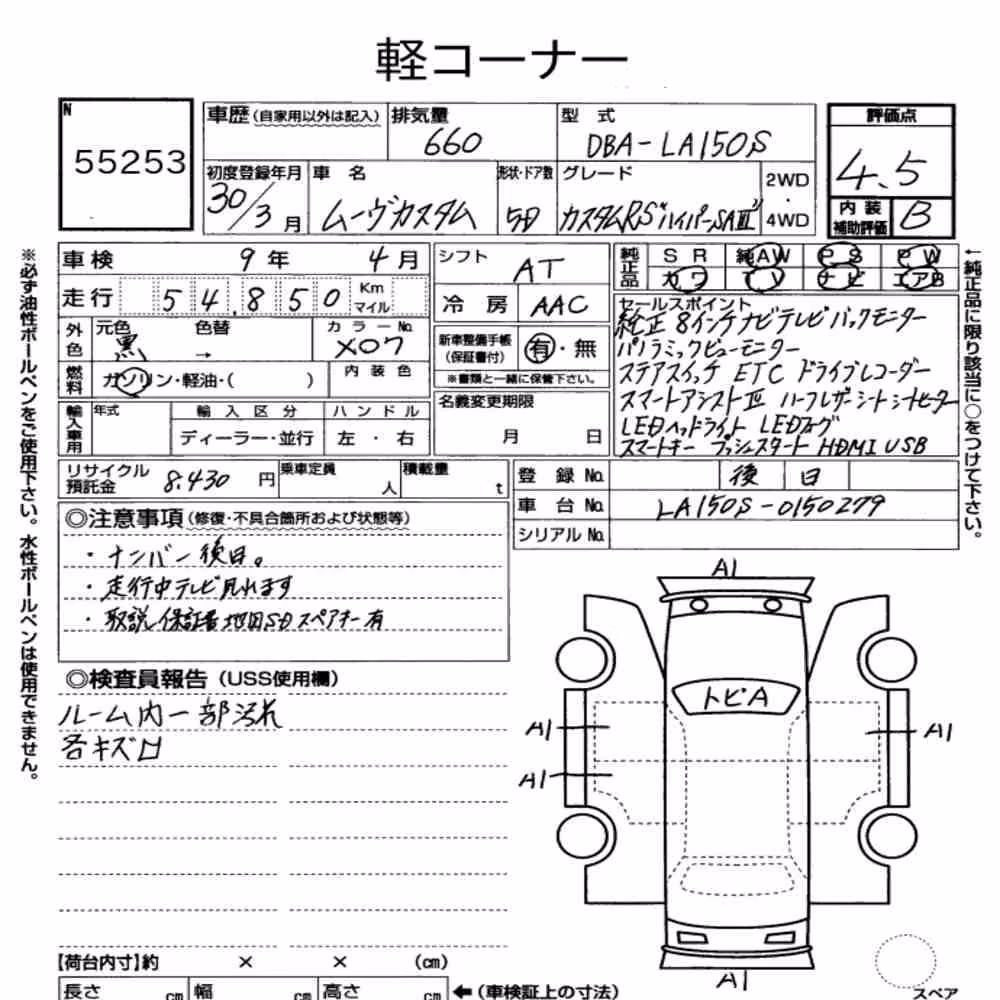 軽コーナー
N
55253
車歴(自家用以外は記入)
排気量
660
型 式
DBA-LA150S
評価点
4.5
内装
補助評価
B
初度登録年月
30/3月
車 名
ムーヴカスタム
形状・ドア数
5D
グレード
カスタムRS"ハイパーSAⅢ"
2WD
・
4WD
車検 9年 4月
走行 54,850 Km
マイル
シフト
AT
冷 房 AAC
純正品
SR 純AW PS PW
カワ TV ナビ エアB
外色
元色 黒
色替 →
カラーNo.
X07
新車整備手帳
(保証書付)
有・無
※書類と一緒に保管下さい。
燃料
ガソリン・軽油・( )
内装色
セールスポイント
純正8インチナビテレビバックモニター
パノラミックビューモニター
ステアスイッチ ETC ドライブレコーダー
スマートアシストⅢ ハーフレザーシートシートヒーター
LEDヘッドライト LEDフォグ
スマートキー プッシュスタート HDMI USB
輸入車用
年式
輸入区分
ディーラー・並行
ハンドル
左・右
名義変更期限
月 日
リサイクル
預託金
8.430 円
乗車定員
人
積載量
t
登 録 No. 後日
車 台 No. LA150S-0150279
シリアル No.
◎注意事項(修復・不具合箇所および状態等)
・ナンバー後日。
・走行中テレビ見れます
・取説 保証書 地図SD スペアキー有
◎検査員報告(USS使用欄)
ルーム内一部汚れ
各キズ凹
A1
トビA
A1
A1
A1
A1
スペア
【荷台内寸】約 × × (cm)
長さ cm 幅 cm 高さ cm ←(車検証上の寸法)
※必ず油性ボールペンをご使用下さい。水性ボールペンは使用できません。
←純正品に限り該当に○をつけて下さい。